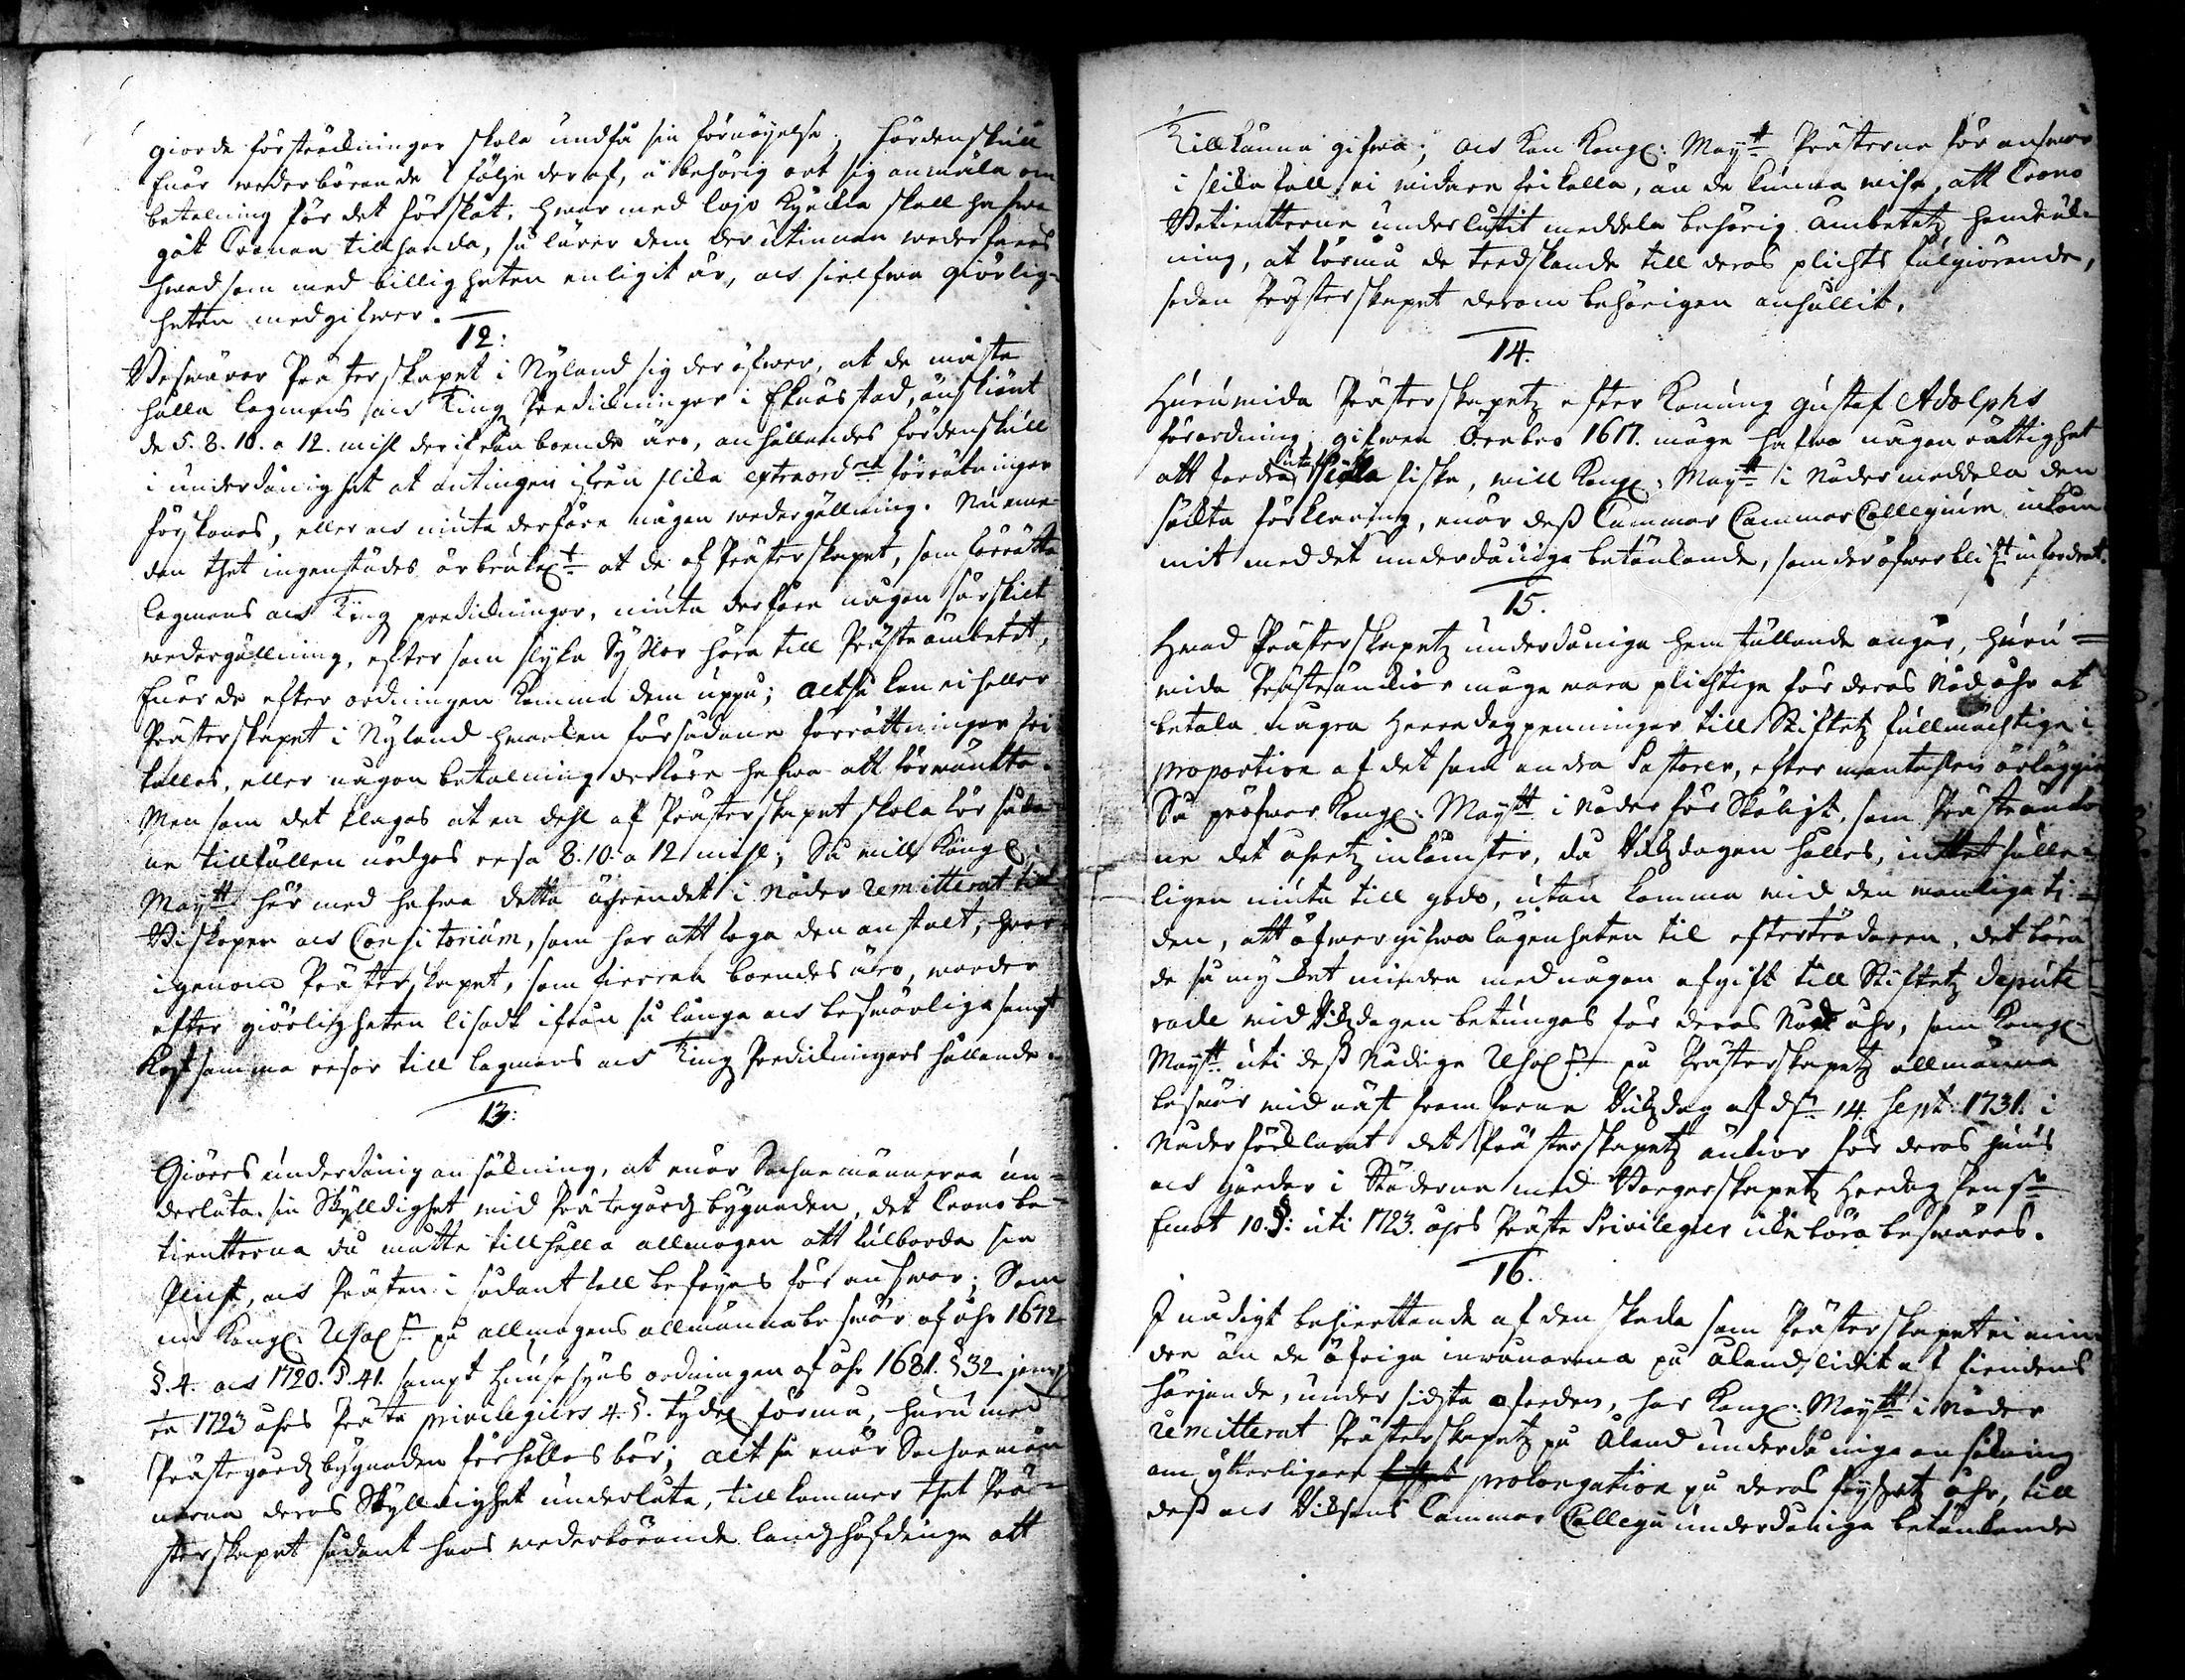 giorde försträckningar skola undfå sin förnöyelse; fördenskull
enär wederbörande i följe der af, å behörig ort sig anmäla om
betalning för det förskåt, hwar med lojo Kyrcka skall hafwa
gåt Cronan tillhanda, så lärer dem der utinnan wederfaras
hwad som med billigheten enligit är, och sielfwa giörlig-
heten medgifwer.
12:
Beswärar Prästerskapet i Nyland sig der öfwer, at de måste
hålla lagmans och Tingz Predickningar i Ekenäs stad, änskiönt
de 5. 8. 10. a 12. mihl der ifrån boende äro, anhållandes fördenskull
i underdånighet at antingen ifrån slika extraord:re förrätningar
förskonas, eller och niuta derföre någon wedergällning. Nu eme-
dan thet ingenstädes är brukel:t at de af Prästerskapet, som förrätta
lagmans och Ting predickningar, niuta derföre någon särskilt
wedergällning, efter som slyka Sysslor höra till Präste ämbetet,
enär de efter ordningen komma dem uppå; Altså kan ei heller
Prästerskapet i Nyland hwarken från sådana förrättningar fri
kallas, eller någon betalning derföre hafwa att förwänta.
Men som det klagas at en dehl af Prästerskapet skola för såda-
ne tillfällen nödgas resa 8. 10. a 12 mihl; Så will Kongl:
May:tt här med hafwa detta ährendet i Nåder remitterat till
Biskopen och Consitorium, som har att laga den anstalt, hwar
igenom Prästerskapet, som fierran boendes äro, warder
efter giörligheten lisadt ifrån så långa och beswärliga samt
Kostsamma resor till lagmans och Ting Predickningars hållande.
13:
Giöres underdånig ansökning, at enär Sochnemännerna un-
derlåta sin Skylldighet wid Prästegårdz bygnaden, det Crono be-
tientterna då måtte tillhålla allmogen att fulborda sin
Plicht, och Prästen i sådant fall befrias för answar; Som
nu Kongl: Resol:n på allmogens allmänna beswär af åhr 1672
§. 4. och 1720. §. 41. sampt Huusesyns ordningen af åhr 1681. §32. jemp-
te 1723 åhrs Präste privilegiers 4. §. tydel förmå, huru med
Prästegårdz bygnaden förhållas bör; Alt så enär Sochnemän
nerna deras Skylldighet underlåta, tillkommer thet Prä-
sterskapet sådant hoos wederbörande landzhöfdinge att
tillkänna gifwa; och kan Kongl: May:tt Prästerna för answar
i slika fall, ei widare frikalla, än de kunna wisa, att Crono
Betientterne underlåtit meddela behörig Ämbetetz handräck-
ning, at förmå de tredskande till deras plichts fulgiörande,
sedan Prästerskapet derom behörigen anhållit.
14.
Huruwida Prästerskapetz efter Konung Gustaf Adolphs
förordning, gifwen Örebro 1617. måge hafwa någon rättighet
att fordra fiska, will Kongl: May:tt i Nåder meddela den
sökta förklaring, enär dess Cammar Cammar Collegium inkom-
mit med det underdåniga betänkande, som deröfwer blif:t infordrat.
15.
Hwad Prästerskapetz underdåniga hemställande angår, huru-
wida Prästeänckior måge wara plichtige för deras Nåd åhr at
betala någre Herredagzpenningar till Stiftetz fullmächtige i
proportion af det som andra Pastorer, efter mantahlen ärläggia
Så pröfwar Kongl: May:tt i Nåder för Skäligt, som Prästeänckor-
ne det åhretz inkomster, då Riksdagen hålles, inttet fulle-
ligen niuta till godo, utan komma wid den wanliga ti-
den, att öfwergifwa lägenheten til efterträdaren, det böra
de så mycket mindre med någon afgift till Stiftetz depute
rade wid Riksdagen betungas för deras Nåd åhr, som Kongl:
May:tt uti dess Nådige Resol:n på Prästerskapetz allmänna
beswär wid näst framfarne Riksdag af d:n 14 Sept: 1731. i
Nåder förklarat det Prästerskapetz änkior för deras huus
och gårdar i Städerna med Borgerskapetz Herdag peng:r
emot 10. §: uti 1723. åhrs Präste Privilegier icke böra beswäras.
16.
I nådigt behierttande af den skada som Prästerskapet ei min-
dre än de öfriga inwånarena på Åland lidit af fiendens
härjande, under sidsta ofreden, har Kongl: May:tt i Nåder
remitterat Prästerskapetz på Åland underdåniga ansökning
om ytterligare prolongation på deras frihetz åhr, till
dess och Riksens Cammar Collegii underdåniga betänkande